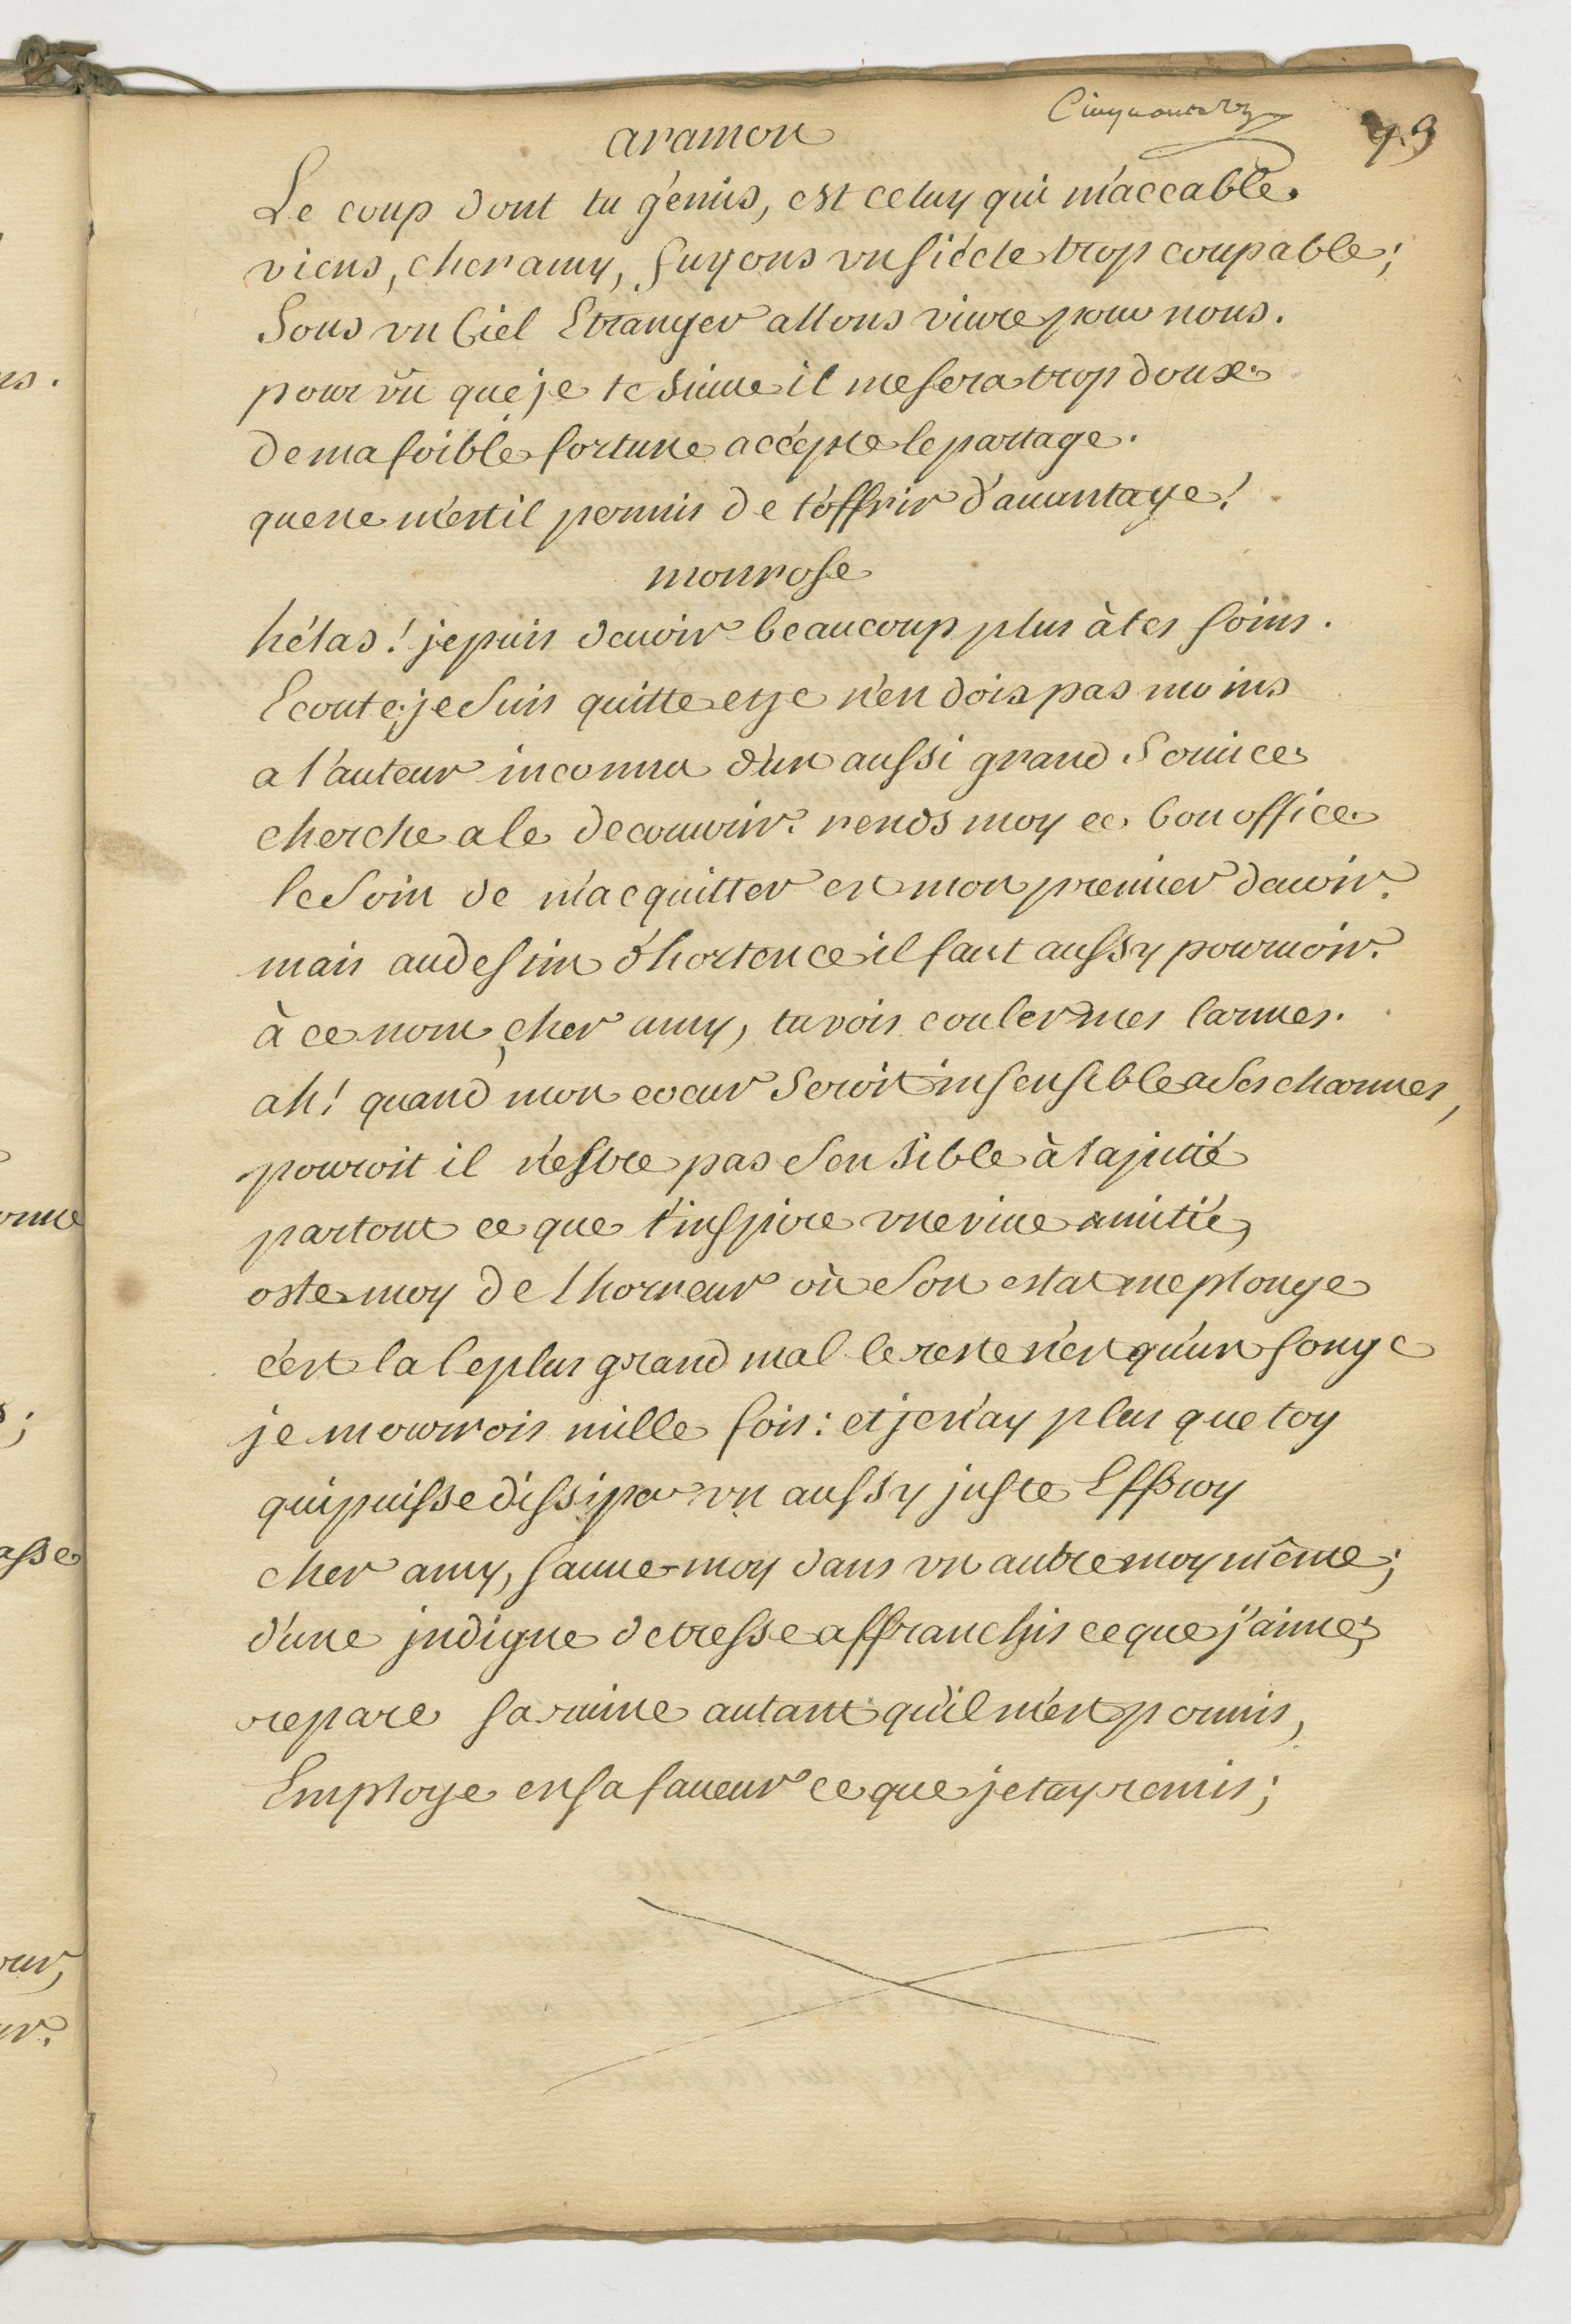 Cinquante
49
aramon
Le coup dont tu gémis, est celuy qui m'accable.
viens, cher amy, fuyons vn siécle trop coupable;
Sous vn Ciel Etranger allons viure pour nous.
pour vû que je te suiue il me sera trop doux.
de ma foible fortune accepte le partage.
que ne m'est il permis de t'offrir d'auantage!
monrose
hélas! je puis deuoir beaucoup plus à tes soins.
Ecoute; je suis quitte et je n'en dois pas moins
a l'auteur inconnu d'un aussi grand seruice
cherche a le decouurir. rends moy ce bon office.
le soin de m'acquitter est mon premier deuoir.
mais au destin d'hortence il faut aussy pouruoir.
à ce nom, cher amy, tu vois couler mes larmes.
ah! quand mon coeur seroit insensible a ses charmes,
pouroit il n'estre pas sensible à la pitié
par tout ce que t'inspire vne viue amitié,
oste moy de l'horreur où son estat me plonge
c'est la le plus grand mal le reste n'est qu'un songe
je mourrois mille fois: et je n'ay plus que toy
qui puisse dissiper vn aussy juste Effroy
cher amy, sauue-moy dans vn autre moy même;
d'une jndigne detresse affranchis ce que j'aime;
repare sa ruine autant qu'il m'est permis,
Employe en sa faueur ce que je tay remis;